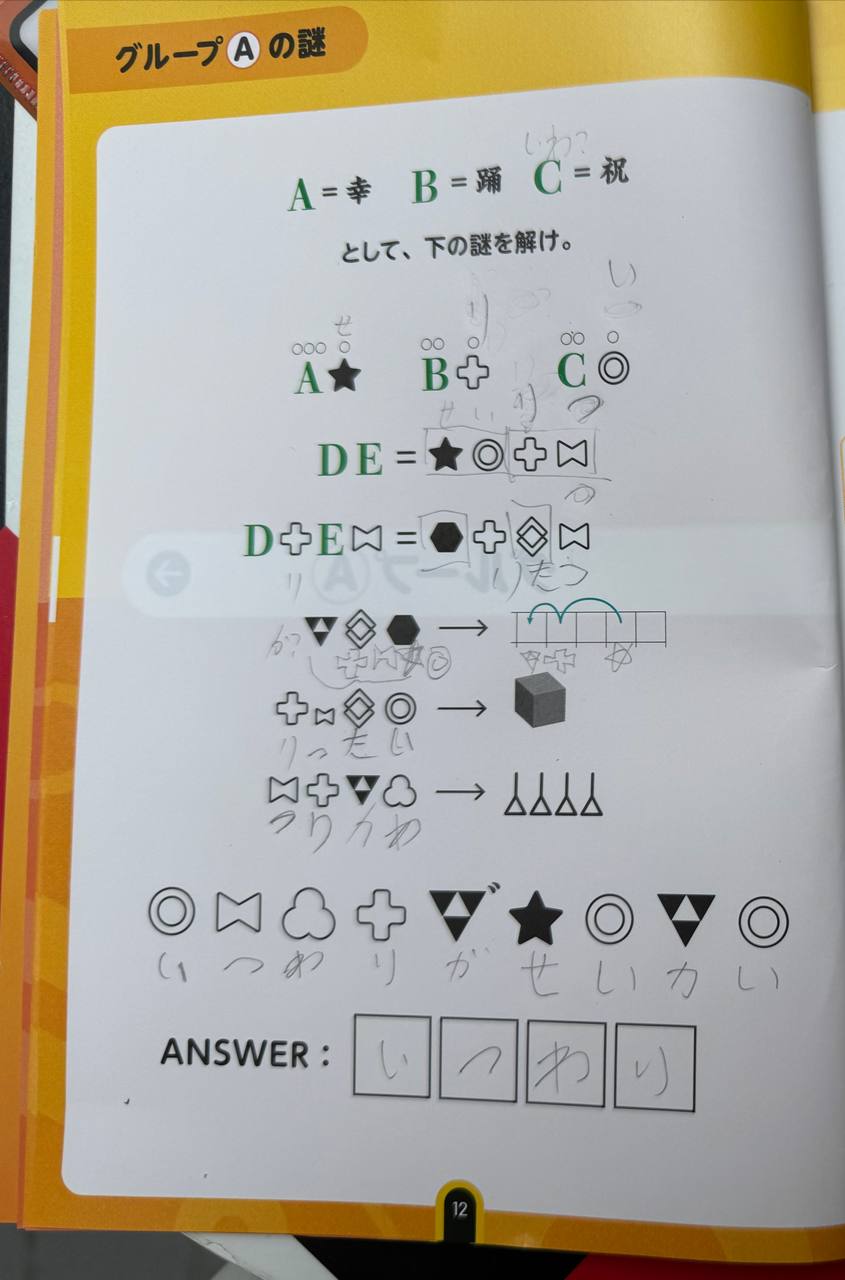 グループAの謎
いわ?
A=幸 B=踊 C=祝
として、下の謎を解け。
い
せ り
A B C
せ い り つ
D E =
D E =
り りたつ
か?
りったい
つりかわ
いつわりがせいかい
ANSWER:
いつわり
12